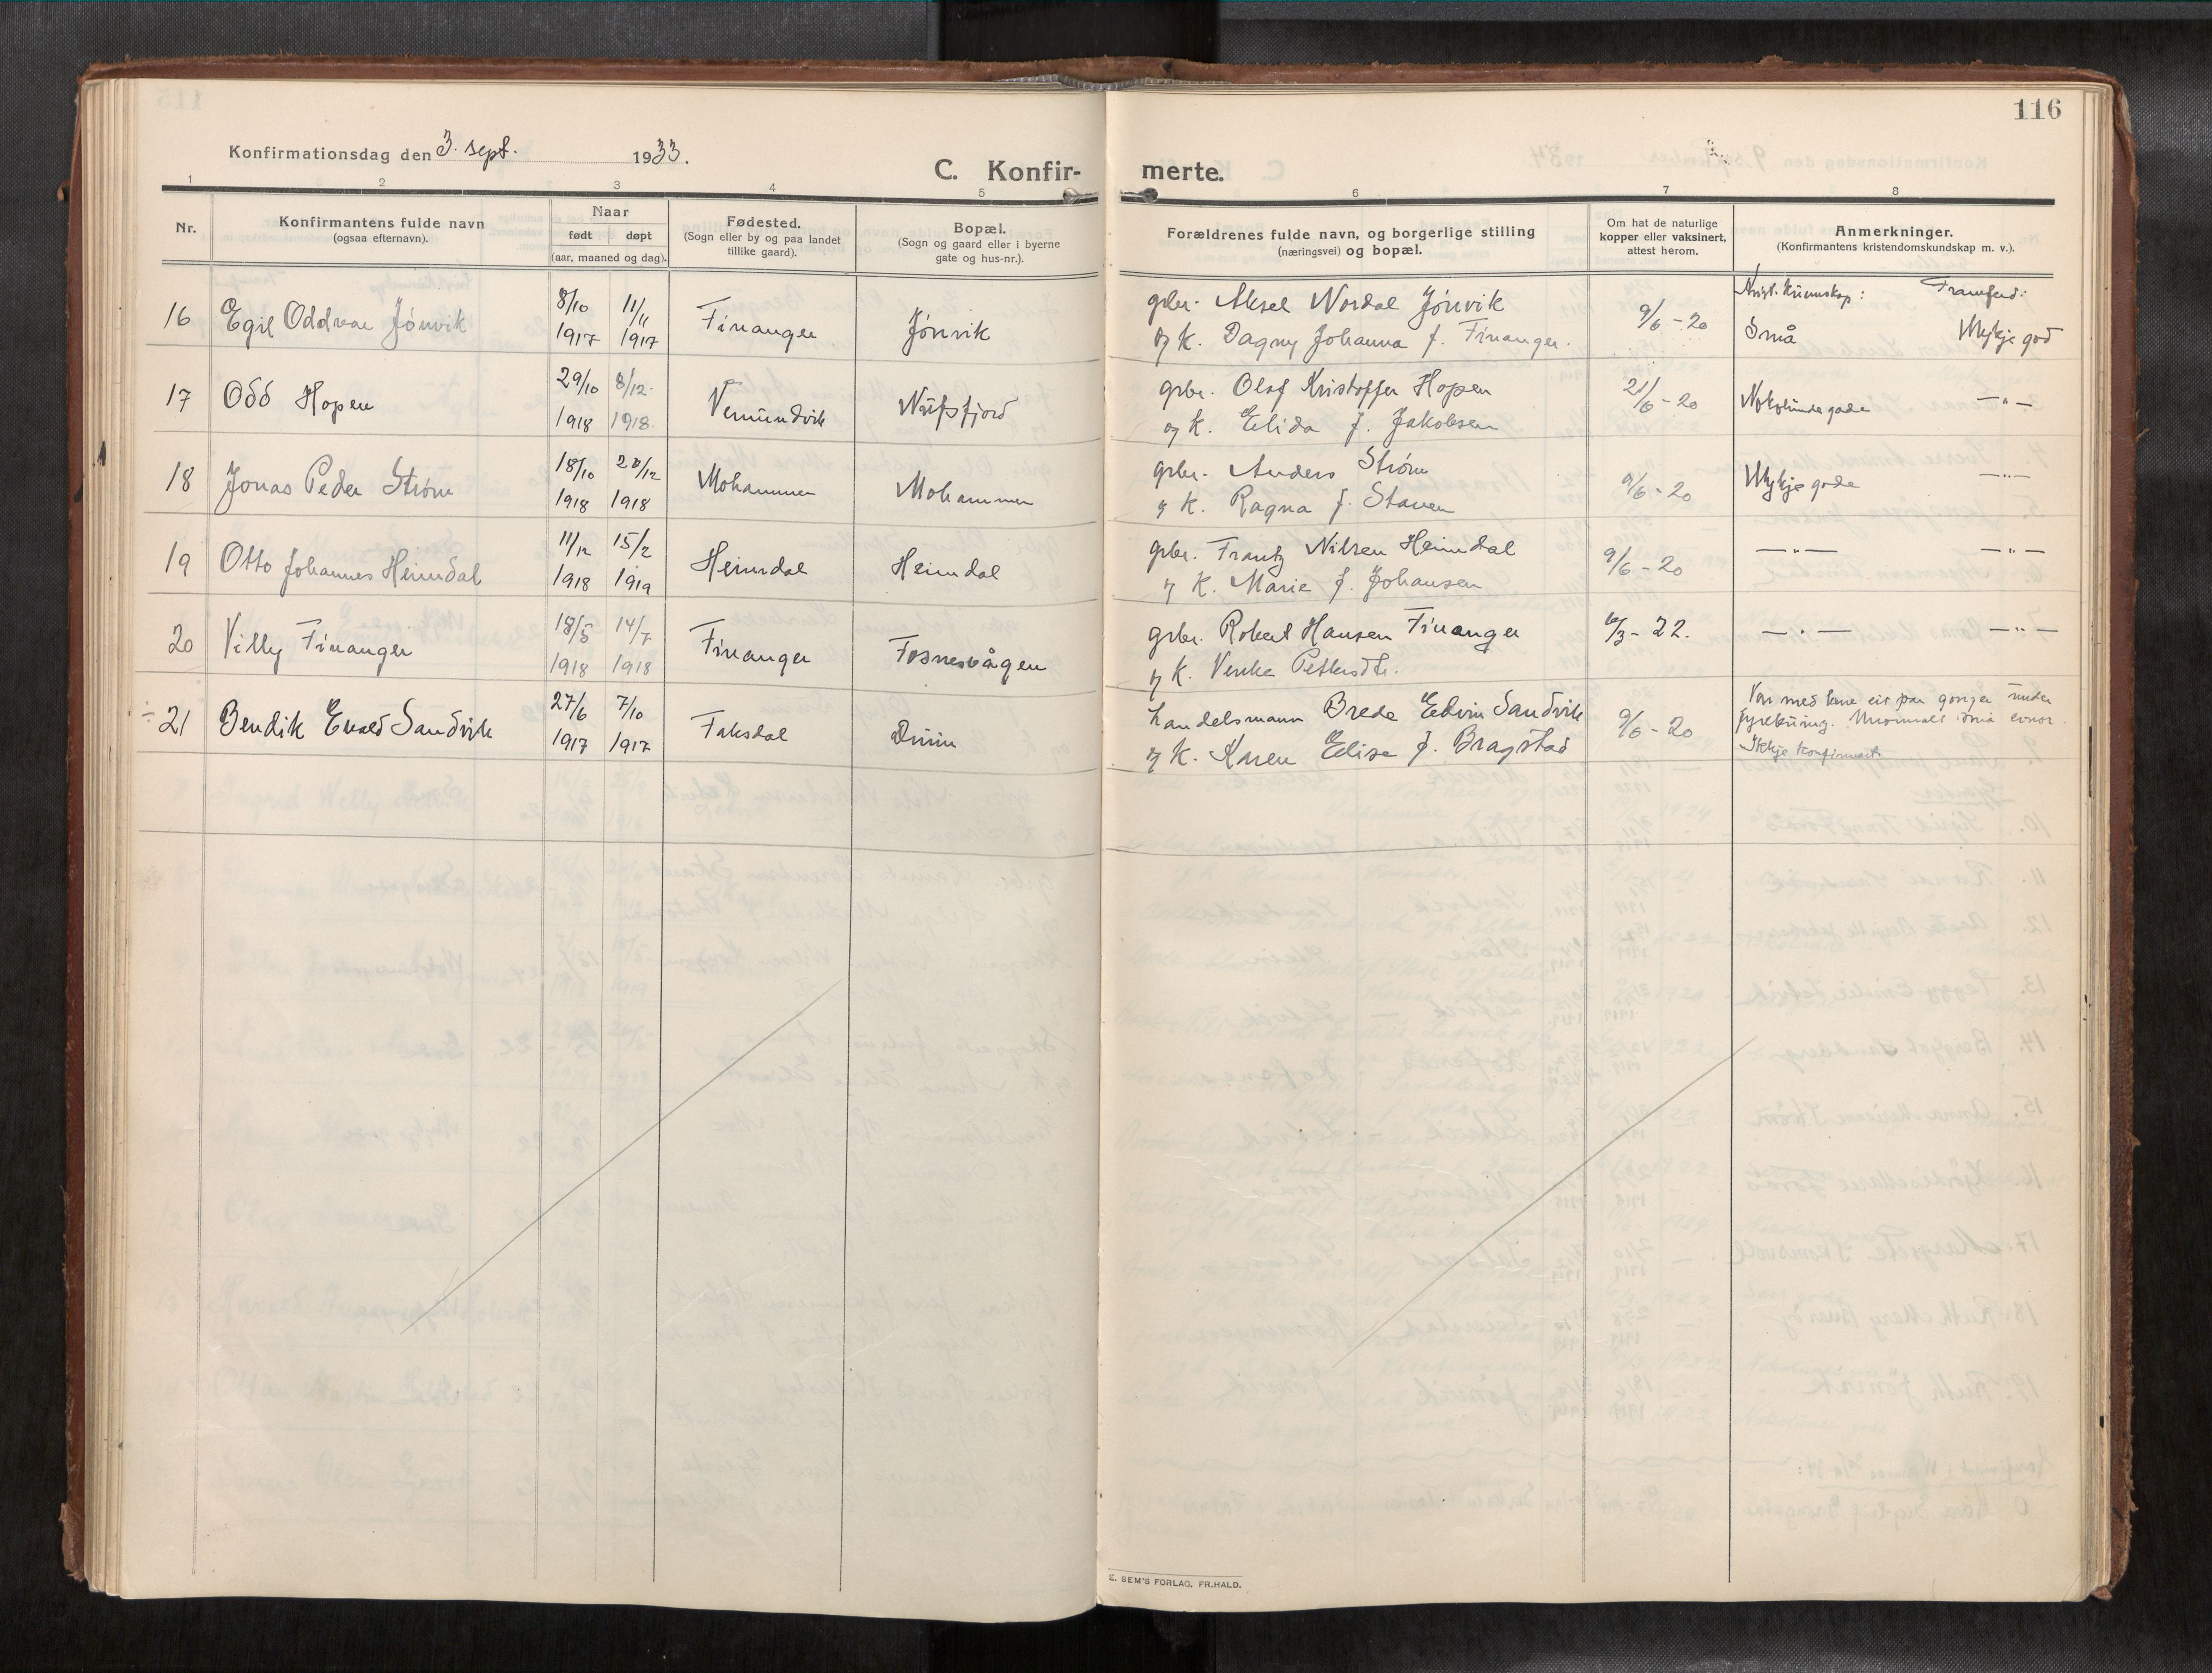 116
Konfirmationsdag den 3. sept. 1933.
C. Konfir-
merte.
1 2 3 4 5 6 7 8
Nr.
Konfirmantens fulde navn
(ogsaa efternavn).
Naar
født døpt
(aar, maaned og dag).
Fødested.
(Sogn eller by og paa landet
tillike gaard).
Bopæl.
(Sogn og gaard eller i byerne
gate og hus-nr.).
Forældrenes fulde navn, og borgerlige stilling
(næringsvei) og bopæl.
Om hat de naturlige
kopper eller vaksinert,
attest herom.
Anmerkninger.
(Konfirmantens kristendomskundskap m. v.).
Krist. kunnskap: Framferd:
16 Egil Oddvar Jønvik 8/10 1917 11/11 1917 Finanger Jønvik
grbr. Aksel Nordal Jønvik
og K. Dagny Johanna f. Finanger.
9/6 - 20 Små Mykje god
17 Odd Hopen 29/10 1918 8/12. 1918. Vemundvik Nufsfjord
grbr. Olaf Kristoffer Hopen
og K. Elida f. Jakobsen
21/6 - 20 Nokolunde gode — " —
18 Jonas Peder Strøm 18/10 1918 28/12 1918 Mohammer Mohammer
grbr. Anders Strøm
og K. Ragna f. Staven
9/6 - 20 Mykje gode — " —
19 Otto Johannes Heimdal 11/12 1918 15/2 1919 Heimdal Heimdal
grbr. Frantz Nilsen Heimdal
og K. Marie f. Johansen
9/6 - 20 — " — — " —
20 Villy Finanger 18/5 1918 14/7 1918 Finanger Fosnesvågen
grbr. Robert Hansen Finanger
og K. Venka Pettersdtr.
6/3 - 22. — " — — " —
÷ 21 Bendik Evald Sandvik 27/6 1917 7/10 1917 Faksdal Duun
handelsmann Brede Edvin Sandvik
og K. Karen Elise f. Bragstad
9/6 - 20
Var med bare eit par gonger under
fyrebuing. Unormalt små evnor.
Ikkje konfirmert.
E. SEM'S FORLAG, FR.HALD.